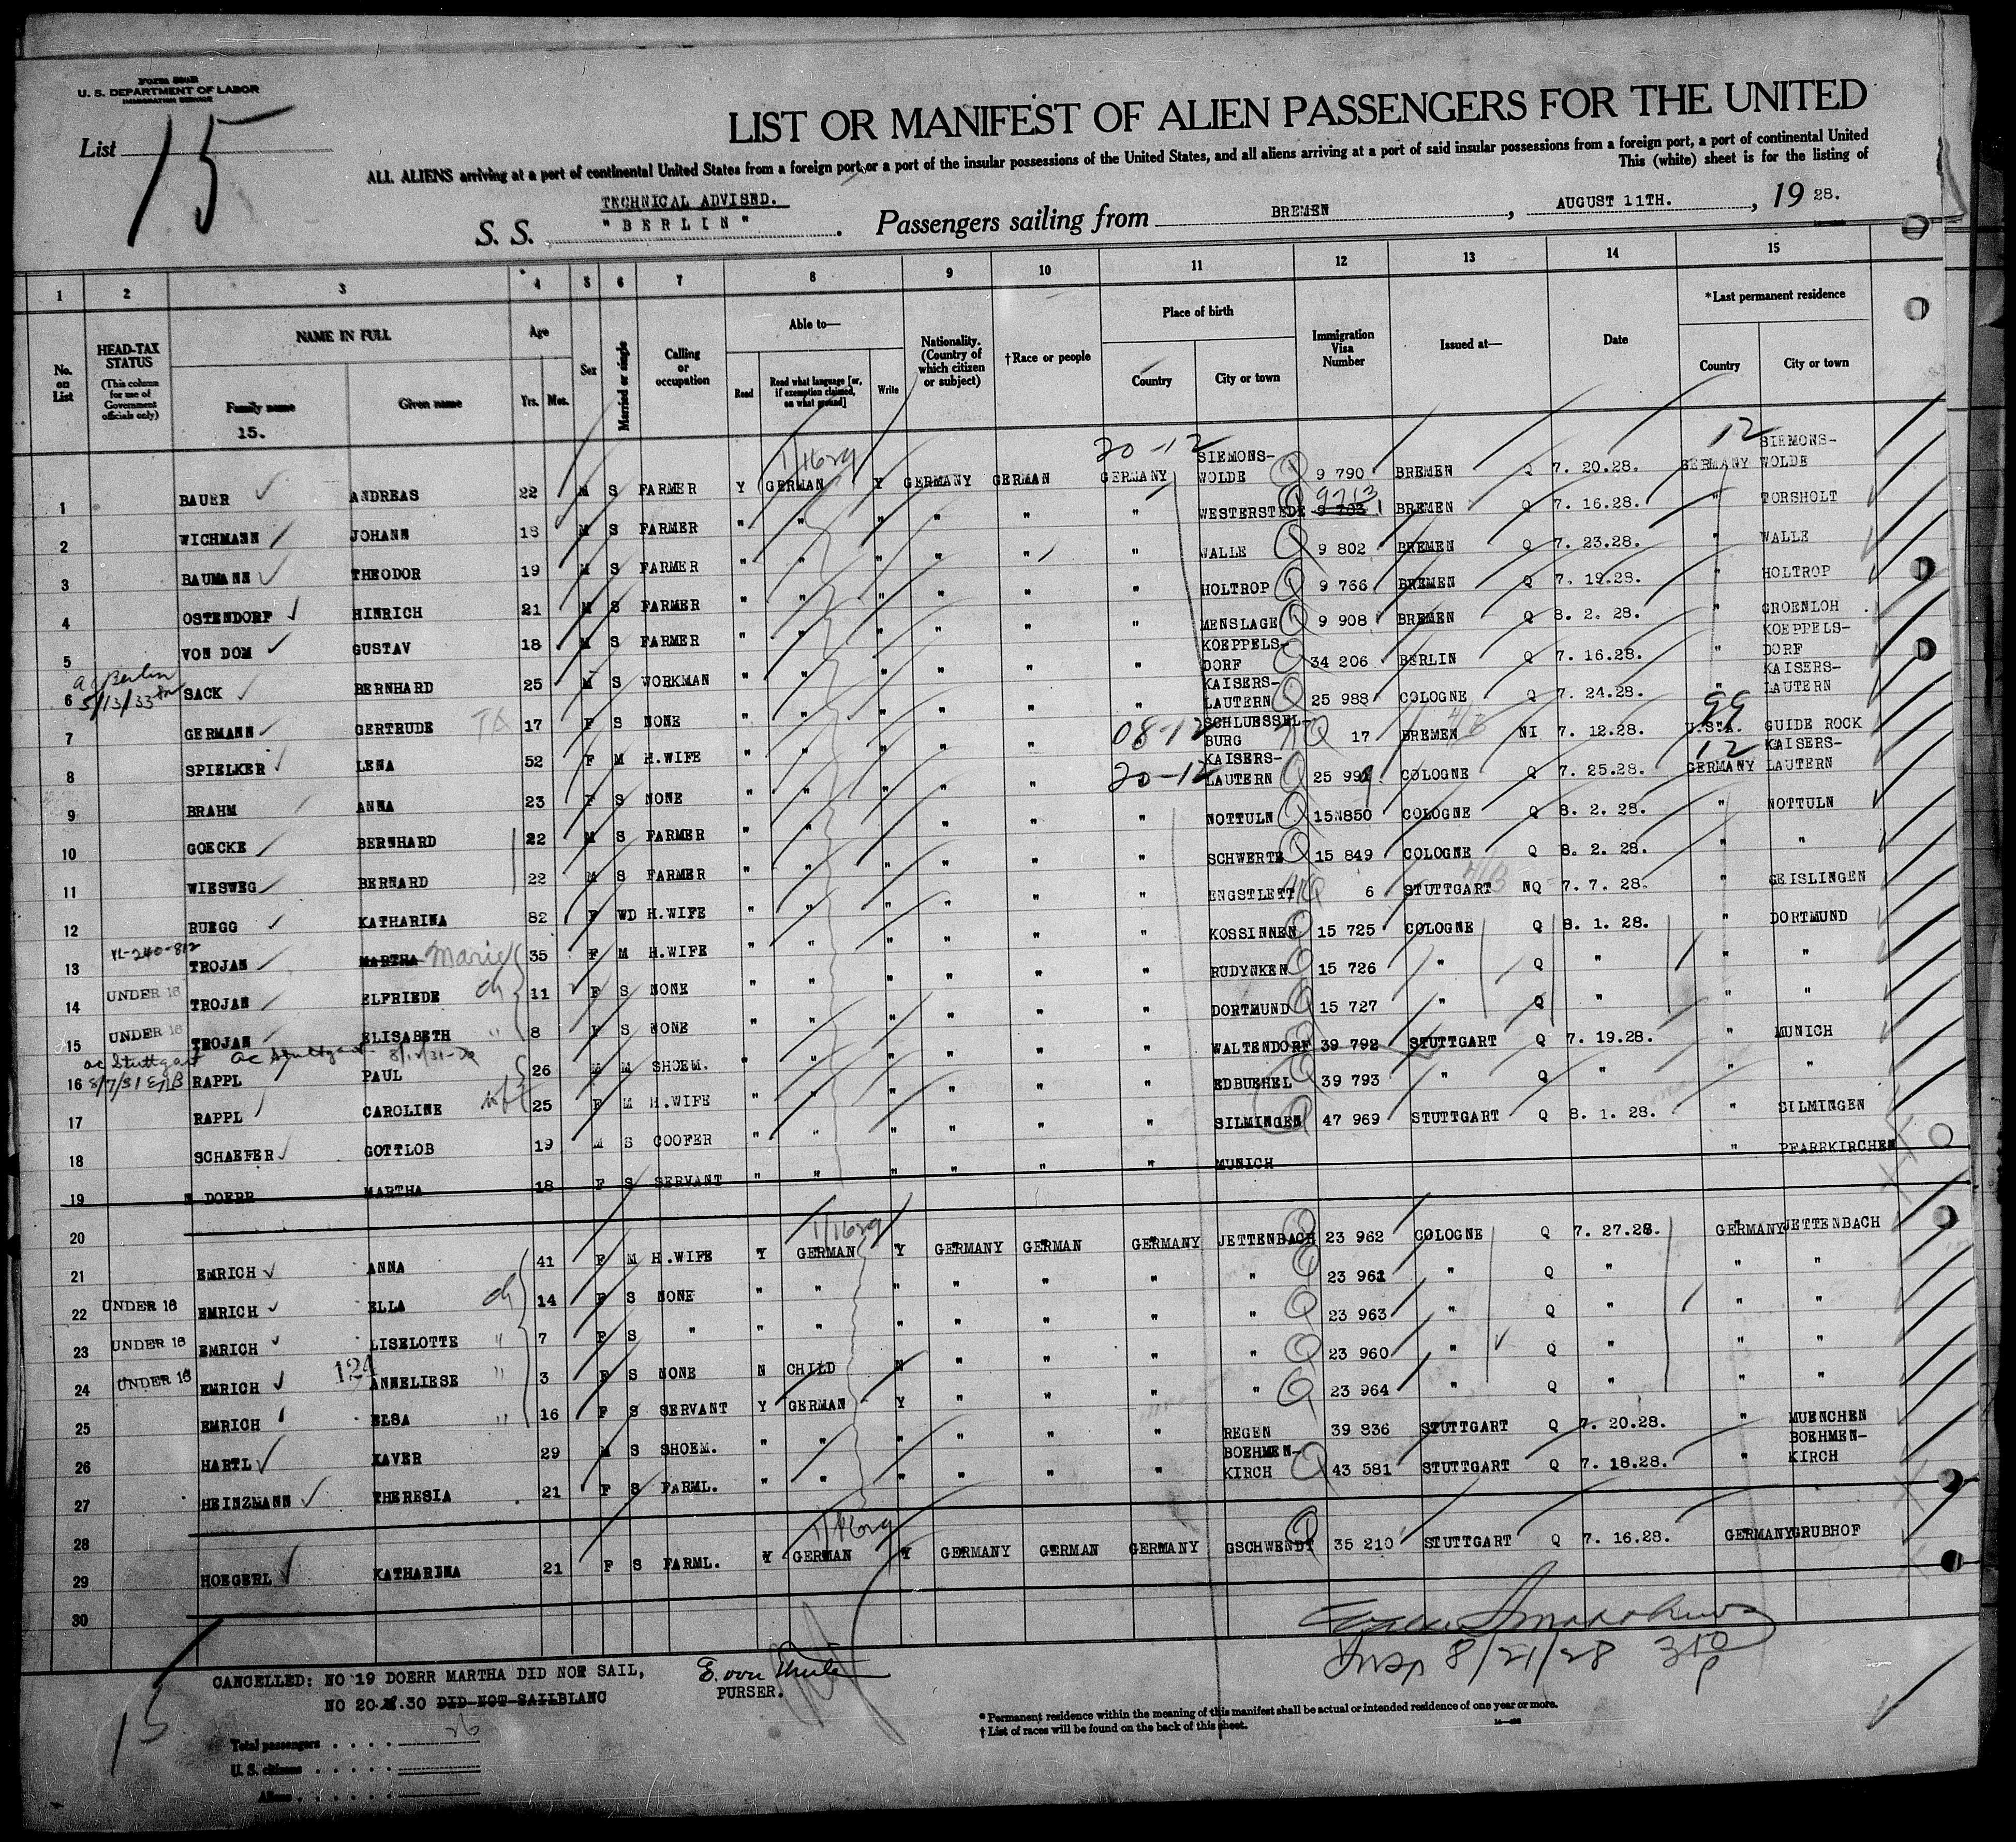 Form 500B
U. S. DEPARTMENT OF LABOR
IMMIGRATION SERVICE
List 15
LIST OR MANIFEST OF ALIEN PASSENGERS FOR THE UNITED
ALL ALIENS arriving at a port of continental United States from a foreign port or a port of the insular possessions of the United States, and all aliens arriving at a port of said insular possessions from a foreign port, a port of continental United
This (white) sheet is for the listing of
TECHNICAL ADVISED.
S. S. "BERLIN" . Passengers sailing from BREMEN , AUGUST 11TH. , 19 28.
1 2 3 4 5 6 7 8 9 10 11 12 13 14 15
No. on List
HEAD-TAX STATUS (This column for use of Government officials only)
NAME IN FULL Family name Given name
Age Yrs. Mos.
Sex
Married or single
Calling or occupation
Able to— Read Read what language [or, if exemption claimed, on what ground] Write
Nationality. (Country of which citizen or subject)
†Race or people
Place of birth Country City or town
Immigration Visa Number
Issued at—
Date
*Last permanent residence Country City or town
15.
20-12 12
1 BAUER ANDREAS 22 M S FARMER Y GERMAN Y GERMANY GERMAN GERMANY SIEMONS-WOLDE Q 9 790 BREMEN Q 7. 20.28. GERMANY SIEMONS-WOLDE
2 WICHMANN JOHANN 18 M S FARMER " " " " " " WESTERSTEDE Q 9713 BREMEN Q 7. 16.28. " TORSHOLT
3 BAUMANN THEODOR 19 M S FARMER " " " " " " WALLE Q 9 802 BREMEN Q 7. 23.28. " WALLE
4 OSTENDORF HINRICH 21 M S FARMER " " " " " " HOLTROP Q 9 766 BREMEN Q 7. 19.28. " HOLTROP
5 VON DOM GUSTAV 18 M S FARMER " " " " " " MENSLAGE Q 9 908 BREMEN Q 8. 2. 28. " GROENLOH
ac Berlin 5/13/33
6 SACK BERNHARD 25 M S WORKMAN " " " " " " KOEPPELS-DORF Q 34 206 BERLIN Q 7. 16.28. " KOEPPELS-DORF
7 GERMANN GERTRUDE 17 F S NONE " " " " " " KAISERS-LAUTERN Q 25 988 COLOGNE Q 7. 24.28. " KAISERS-LAUTERN
8 SPIELKER LENA 52 F M H.WIFE " " " " " 08-12 SCHLUESSEL-BURG NQ 17 BREMEN NI 7. 12.28. 99 U.S.A. GUIDE ROCK
9 BRAHM ANNA 23 F S NONE " " " " " 20-12 KAISERS-LAUTERN Q 25 991 COLOGNE Q 7. 25.28. 12 GERMANY KAISERS-LAUTERN
10 GOECKE BERNHARD 22 M S FARMER " " " " " " NOTTULN Q 15N850 COLOGNE Q 8. 2. 28. " NOTTULN
11 WIESWEG BERNARD 22 M S FARMER " " " " " " SCHWERTE Q 15 849 COLOGNE Q 8. 2. 28. " "
12 RUEGG KATHARINA 82 F WD H.WIFE " " " " " " ENGSTLETT NQ 6 STUTTGART NQ 7. 7. 28. " GEISLINGEN
13 VL-240-812 TROJAN MARTHA Marie 35 F M H.WIFE " " " " " " KOSSINNEN Q 15 725 COLOGNE Q 8. 1. 28. " DORTMUND
14 UNDER 16 TROJAN ELFRIEDE ch 11 F S NONE " " " " " " RUDYNKEN Q 15 726 " Q " " "
15 UNDER 16 TROJAN ELISABETH " 8 F S NONE " " " " " " DORTMUND Q 15 727 " Q " " "
ac Stuttgart ac Stuttgart
16 8/7/31 RAPPL PAUL 26 M M SHOEM. " " " " " " WALTENDORF Q 39 792 STUTTGART Q 7. 19.28. " MUNICH
17 RAPPL CAROLINE wf 25 F M H.WIFE " " " " " " EDBUEHEL Q 39 793 " Q " " "
18 SCHAEFER GOTTLOB 19 M S COOFER " " " " " " SILMINGEN Q 47 969 STUTTGART Q 8. 1. 28. " SILMINGEN
19 DOERR MARTHA 18 F S SERVANT " " " " " " MUNICH " PFARRKIRCHEN
20
21 EMRICH ANNA 41 F M H.WIFE Y GERMAN Y GERMANY GERMAN GERMANY JETTENBACH Q 23 962 COLOGNE Q 7. 27.28. GERMANY JETTENBACH
22 UNDER 16 EMRICH ELLA ch 14 F S NONE " " " " " " " Q 23 961 " Q " " "
23 UNDER 16 EMRICH LISELOTTE " 7 F S " " " " " " " " Q 23 963 " Q " " "
24 UNDER 16 EMRICH 124 ANNELIESE " 3 F S NONE N CHILD N " " " " Q 23 960 " Q " " "
25 EMRICH ELSA " 16 F S SERVANT Y GERMAN Y " " " " Q 23 964 " Q " " "
26 HARTL XAVER 29 M S SHOEM. " " " " " " REGEN 39 836 STUTTGART Q 7. 20.28. " MUENCHEN
27 HEINZMANN THERESIA 21 F S FARML. " " " " " " BOEHMEN-KIRCH Q 43 581 STUTTGART Q 7. 18.28. " BOEHMEN-KIRCH
28
29 HOEGERL KATHARINA 21 F S FARML. Y GERMAN Y GERMANY GERMAN GERMANY GSCHWENDT Q 35 210 STUTTGART Q 7. 16.28. GERMANY GRUBHOF
30
Insp 8/21/28
CANCELLED: NO 19 DOERR MARTHA DID NOT SAIL,
NO 20 .30 DID NOT SAIL BLANC
PURSER.
15
Total passengers . . . . 26
U. S. citizens . . . . .
Aliens . . . . . .
* Permanent residence within the meaning of this manifest shall be actual or intended residence of one year or more.
† List of races will be found on the back of this sheet.